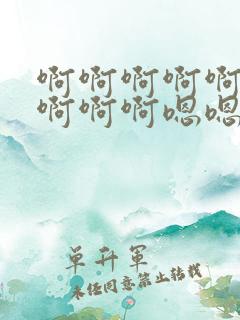 啊啊啊啊啊
啊啊啊嗯嗯
单升军
未经同意禁止转载